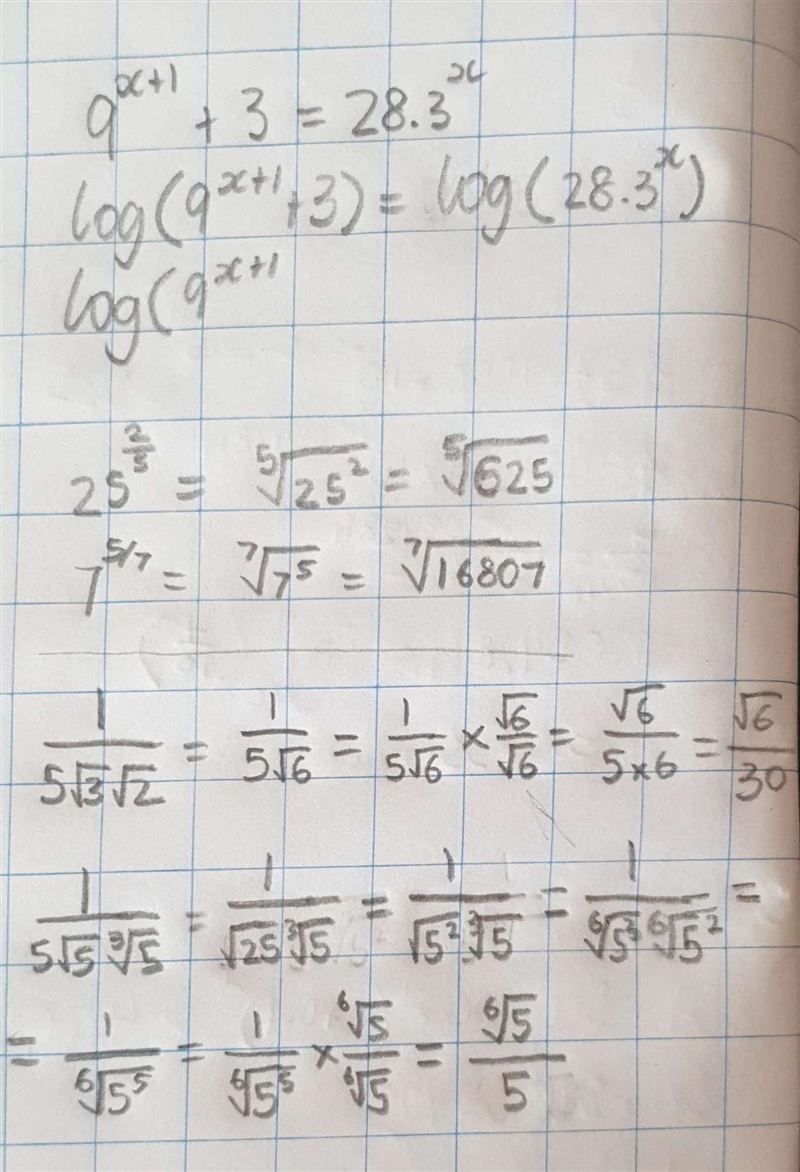 9^{x+1} + 3 = 28.3^x
log(9^{x+1}+3) = log(28.3^x)
log(9^{x+1}
25^{2/5} = ⁵√25² = ⁵√625
7^{5/7} = ⁷√7⁵ = ⁷√16807
1/(5√3√2) = 1/(5√6) = 1/(5√6) × √6/√6 = √6/(5×6) = √6/30
1/(5√5 ³√5) = 1/(√25 ³√5) = 1/(√5² ³√5) = 1/(⁶√5³ ⁶√5²) =
= 1/⁶√5⁵ = 1/⁶√5⁵ × ⁶√5/⁶√5 = ⁶√5/5